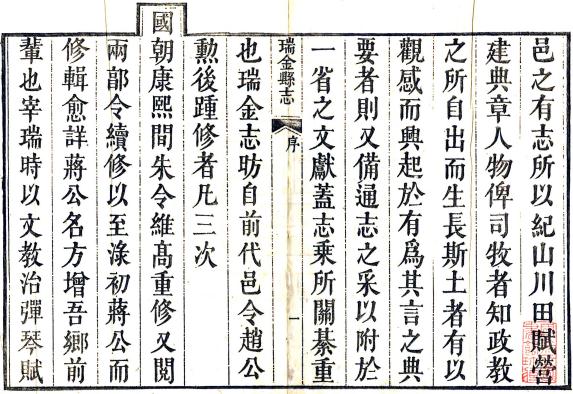 邑之有志所以紀山川田賦營
建典章人物俾司牧者知政教
之所自出而生長斯土者有以
觀感而興起於有爲其言之典
要者則又備通志之采以附於
一省之文獻蓋志乘所關綦重
瑞金縣志 序 一
也瑞金志昉自前代邑令趙公
勲後踵修者凡三次
國朝康熙間朱令維髙重修又閱
兩郭令續修以至淥初蔣公而
修輯愈詳蔣公名方增吾鄉前
輩也宰瑞時以文教治彈琴賦